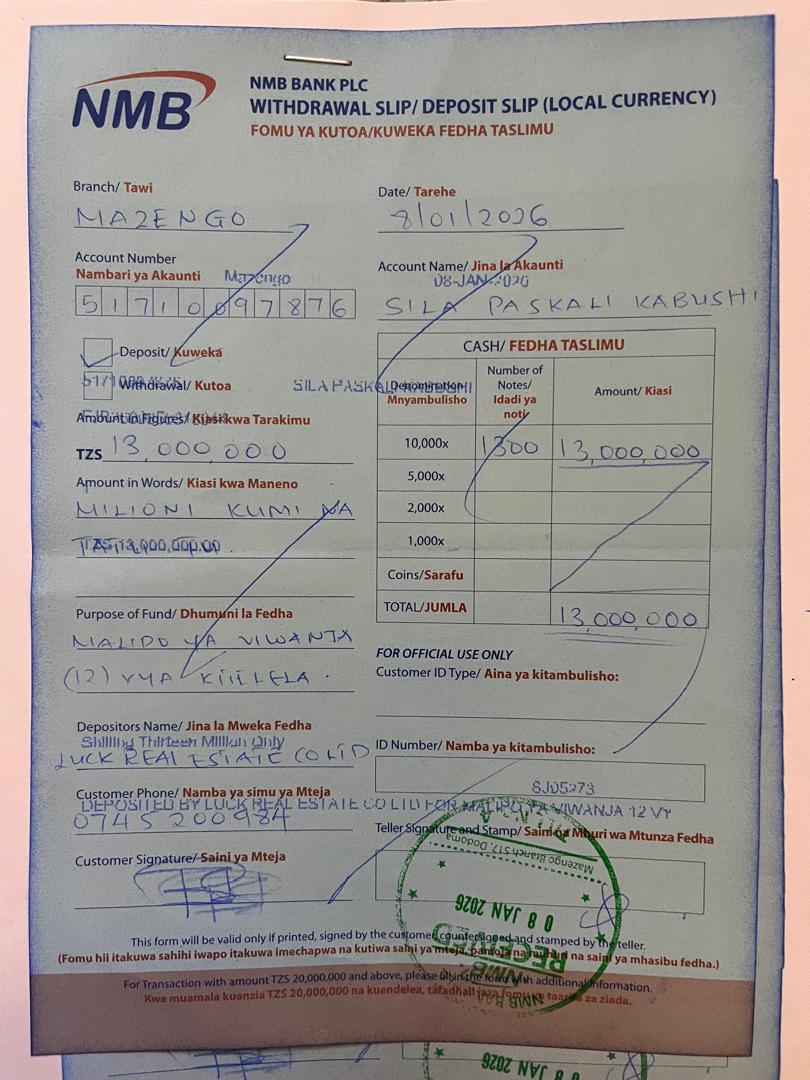 NMB
NMB BANK PLC
WITHDRAWAL SLIP/ DEPOSIT SLIP (LOCAL CURRENCY)
FOMU YA KUTOA/KUWEKA FEDHA TASLIMU
Branch/ Tawi
MAZENGO
Date/ Tarehe
8/01/2026
Account Number
Nambari ya Akaunti
Mazengo
51710097876
Account Name/ Jina la Akaunti
08-JAN-2026
SILA PASKALI KABUSHI
Deposit/ Kuweka
Withdrawal/ Kutoa
SILA PASKALI KABUSHI
Amount in Figures/ Kiasi kwa Tarakimu
TZS 13,000,000
Amount in Words/ Kiasi kwa Maneno
MILIONI KUMI NA
TATU
13,000,000.00
Purpose of Fund/ Dhumuni la Fedha
MALIPO YA VIWANJA
(12) VYA
Depositors Name/ Jina la Mweka Fedha
Shilling Thirteen Million Only
LUCK REAL ESTATE CO LTD
Customer Phone/ Namba ya simu ya Mteja
DEPOSITED BY LUCK REAL ESTATE CO LTD FOR MALIPO YA VIWANJA 12 VY
0745 200984
Customer Signature/ Saini ya Mteja
CASH/ FEDHA TASLIMU
Denomination Mnyambulisho
Number of Notes/ Idadi ya noti
Amount/ Kiasi
10,000x 1300 13,000,000
5,000x
2,000x
1,000x
Coins/Sarafu
TOTAL/JUMLA 13,000,000
FOR OFFICIAL USE ONLY
Customer ID Type/ Aina ya kitambulisho:
ID Number/ Namba ya kitambulisho:
SJ05273
Teller Signature and Stamp/ Saini na Mhuri wa Mtunza Fedha
Mazengo Branch 517, Dodoma
08 JAN 2026
RECEIVED
This form will be valid only if printed, signed by the customer, countersigned and stamped by the teller.
(Fomu hii itakuwa sahihi iwapo itakuwa imechapwa na kutiwa saini ya mteja, pamoja na mhuri na saini ya mhasibu fedha.)
For Transaction with amount TZS 20,000,000 and above, please fill in the form with additional information.
Kwa muamala kuanzia TZS 20,000,000 na kuendelea, tafadhali jaza fomu ya taarifa za ziada.
08 JAN 2026